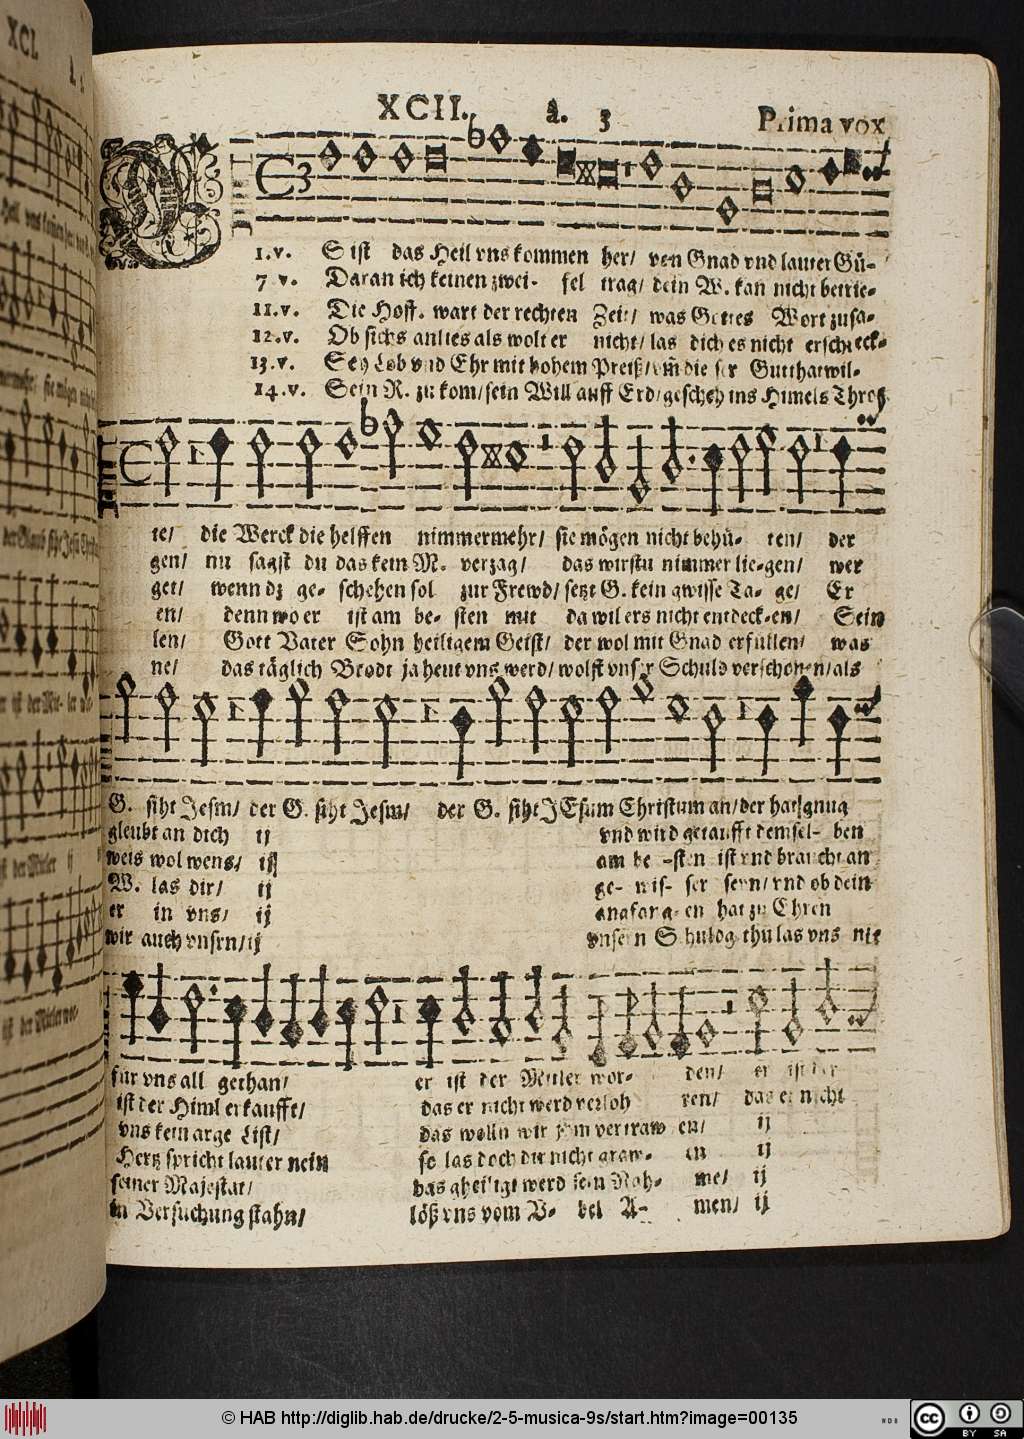 XCI.
XCII. à. 3 Prima vox
1.v. S ist das Heil vns kommen her/ von Gnad vnd lauter Gü-
7 v. Daran ich keinen zwei- fel trag/ dein W. kan nicht betrie-
11.v. Die Hoff. wart der rechten Zeit/ was Gottes Wort zusa-
12.v. Ob sichs anlies als wolt er nicht/ las dich es nicht erschreck-
13.v. Sey Lob vnd Ehr mit hohem Preiß/ vm̃ die ser Gutthat wil-
14.v. Sein R. zu kom/ sein Will auff Erd/ gescheh ins Himels Thro
te/ die Werck die helffen nimmermehr/ sie mögen nicht behü- ten/ der
gen/ nu sagst du das kein M. verzag/ das wirstu nimmer lie-gen/ wer
get/ wenn dz ge- schehen sol zur Frewd/ setzt G. kein gwisse Ta- ge/ Er
en/ denn wo er ist am be- sten mit da wil ers nicht entdeck-en/ Sein
len/ Gott Vater Sohn heiligem Geist/ der wol mit Gnad erfüllen/ was
ne/ das täglich Brodt ja heut vns werd/ wolst vnser Schuld verschonen/ als
G. siht Jesm/ der G. siht Jesm/ der G. siht JEsum Christum an/ der hat gnug
gleubt an dich ij vnd wird getaufft demsel- ben
weis wol wens/ ij am be -sten ist vnd braucht an
W. las dir/ ij ge- wis- ser seyn/ vnd ob dein
er in vns/ ij angefang- en hat zu Ehren
wir auch vnsrn/ ij vnsern Schuldg. thu las vns nit
für vns all gethan/ er ist der Mitler wor- den/ er ist der
ist der Himl erkaufft/ das er nicht werd verloh ren/ das er nicht
vns kein arge List/ das wolln wir jhm vertraw en/ ij
Hertz spricht lauter nein so las doch dir nicht graw- en ij
seiner Majestat/ das gheiligt werd sein Nah- me/ ij
in Versuchung stahn/ löß vns vom V- bel A- men/ ij
© HAB http://diglib.hab.de/drucke/2-5-musica-9s/start.htm?image=00135
cc BY SA